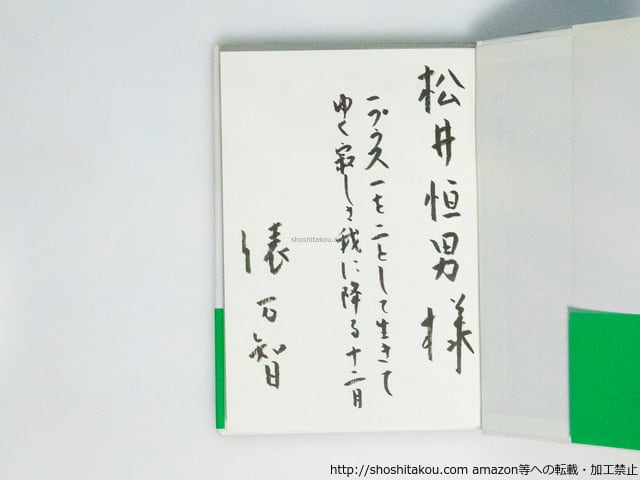 松井恒男様
一プラス一を二として生きて
ゆく寂しき我に降る十二月
俵万智
shoshitakou.com
http://shoshitakou.com amazon等への転載・加工禁止